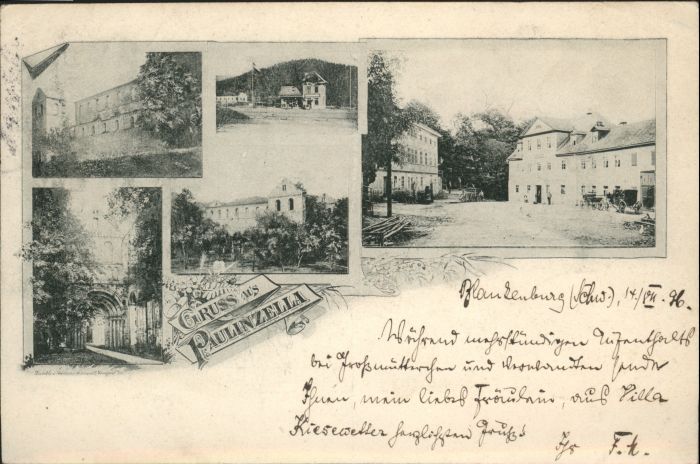 GRUSS AUS
PAULINZELLA
Blankenburg (Schw.), 14/VII. 96.
Während mehrstündigen Aufenthalts
bei Großmütterchen und Verwandten sende
Ihnen, mein liebes Fräulein, aus Villa
Kiesewetter herzlichsten Gruß!
Ihr F. K.